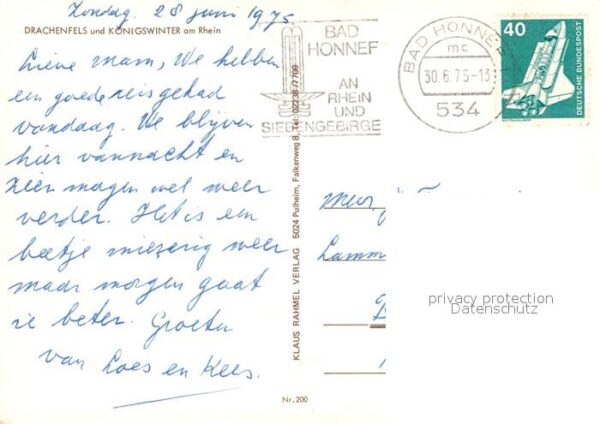 Zondag. 28 juni 1975
DRACHENFELS und KÖNIGSWINTER am Rhein
Lieve Mam, We hebben
een goede reis gehad
vandaag. We blijven
hier vannacht en
zien morgen wel weer
verder. Het is een
beetje miezerig weer
maar morgen gaat
ie beter. Groeten
van Loes en Kees.
BAD
HONNEF
AN
RHEIN
UND
SIEBENGEBIRGE
BAD HONNEF
mc
30.6.75-13
534
40
DEUTSCHE BUNDESPOST
KLAUS RAHMEL VERLAG 5024 Pulheim, Falkenweg 8, Tel. 02238/7709
Mevr.
Lamm
privacy protection
Datenschutz
Nr. 200